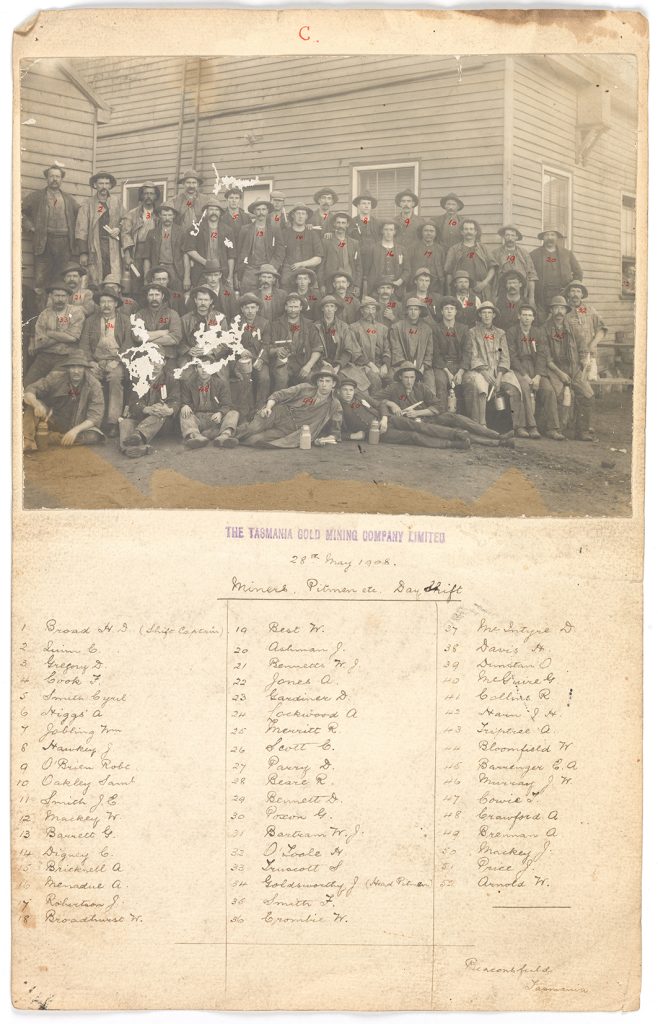 C.
THE TASMANIA GOLD MINING COMPANY LIMITED
28th May 1908.
Miners, Pitmen etc. Day Shift
1 Broad H. D. (Shift Captain)
2 Quinn C.
3 Gregory D.
4 Cook F.
5 Smith Cyril
6 Higgs A
7 Jobling Wm
8 Hawkey J
9 O'Brien Robt.
10 Oakley Saml
11 Smith J. C.
12 Mackey W.
13 Barrett G.
14 Digney C.
15 Bricknell A
16 Menadue A.
7 Robertson J.
8 Broadhurst W.
19 Best W.
20 Ashman J.
21 Bennetts W. J.
22 Jones A.
23 Gardiner D.
24 Lockwood A
25 Merritt R.
26 Scott C.
27 Parry D.
28 Beare R.
29 Bennett D.
30 Poxon G.
31 Bartram W. J.
32 O'Toole H
33 Truscott S
34 Goldsworthy J (Head Pitman)
35 Smith F.
36 Crombie W.
37 McIntyre D
38 Davis H.
39 Dunstan O
40 McGuire G
41 Collins R
42 Hann J H.
43 Triptree A.
44 Bloomfield W
45 Barrenger E. A
46 Murray J. W.
47 Cowie T.
48 Crawford A
49 Brennan A.
50 Mackey J.
51 Price J
52 Arnold W.
Beaconsfield
Tasmania